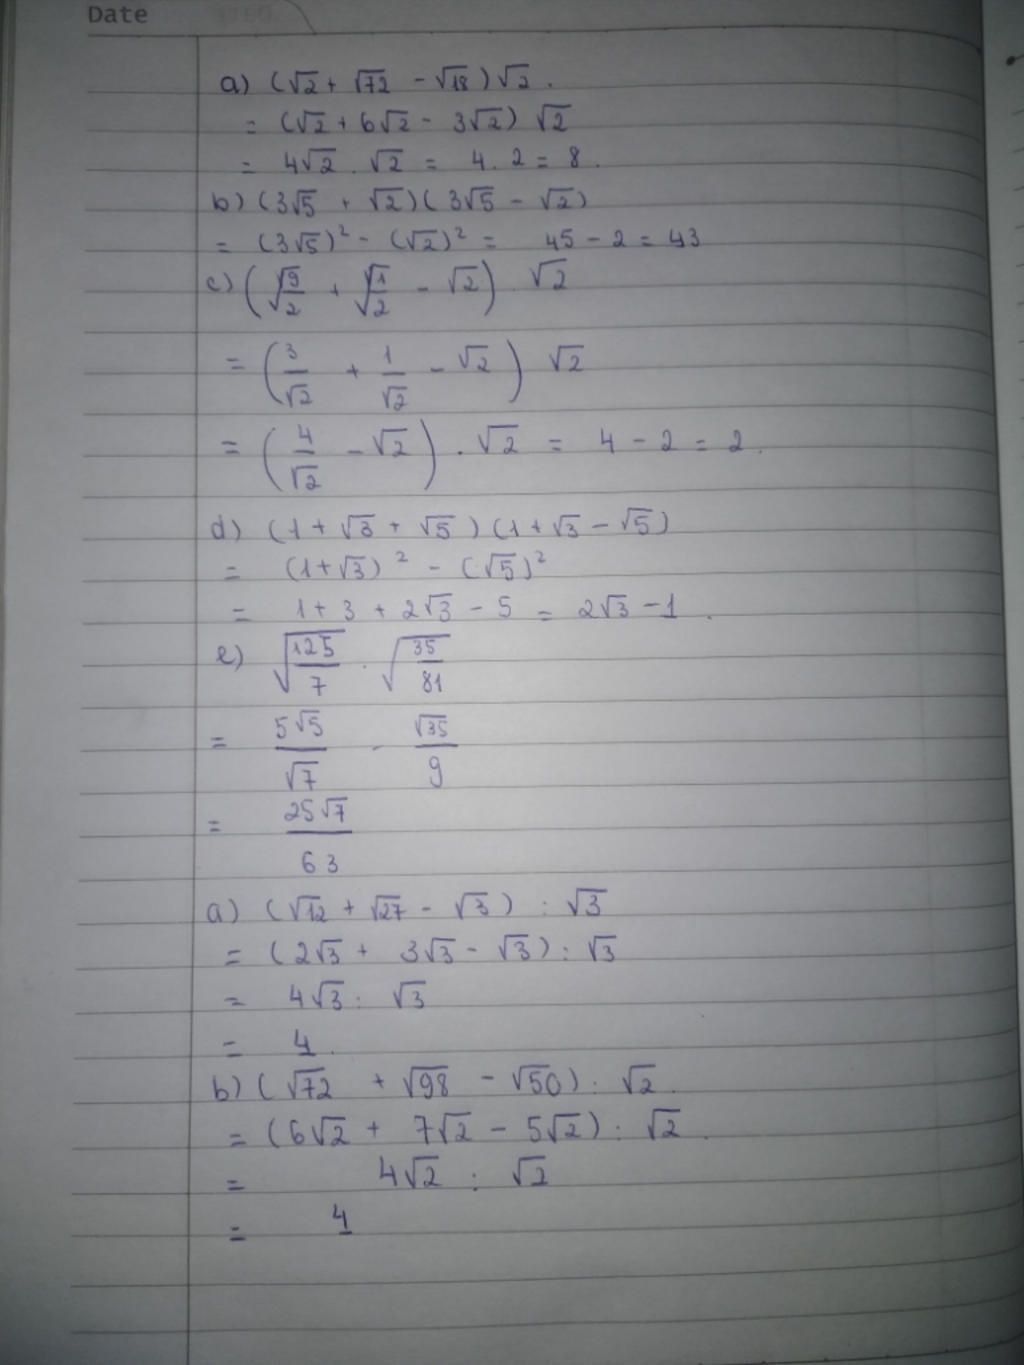 Date
a) (√2 + √72 - √18) √2 .
= (√2 + 6√2 - 3√2) √2
= 4√2 . √2 = 4 . 2 = 8 .
b) (3√5 + √2)(3√5 - √2)
= (3√5)² - (√2)² = 45 - 2 = 43
c) (√(9/2) + √(1/2) - √2) . √2
= (3/√2 + 1/√2 - √2) √2
= (4/√2 - √2) . √2 = 4 - 2 = 2 .
d) (1 + √3 + √5)(1 + √3 - √5)
= (1 + √3)² - (√5)²
= 1 + 3 + 2√3 - 5 = 2√3 - 1 .
e) √(125/7) . √(35/81)
= 5√5/√7 . √35/9
= 25√7/63
a) (√12 + √27 - √3) : √3
= (2√3 + 3√3 - √3) : √3
= 4√3 : √3
= 4 .
b) (√72 + √98 - √50) : √2 .
= (6√2 + 7√2 - 5√2) : √2 .
= 4√2 : √2
= 4